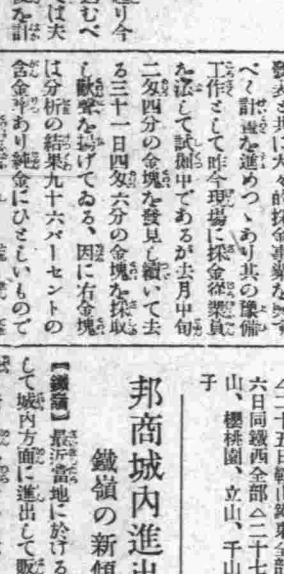 發表と共に大々的採金事業を興す
べく計畫を進めつゝあり其の豫備
工作として昨今現場に採金從業員
を派して試掘中であるが去月中旬
二匁四分の金塊を發見し續いて去
る三十一日四匁六分の金塊を採取
し歡聲を揚げてゐる、因に右金塊
は分析の結果九十六パーセントの
含金率あり純金にひとしいもので
山、櫻桃園、立山、千山
子
邦商城内進出
鐵嶺の新傾
【鐵嶺】最近當地に於ける
して城内方面に進出して販